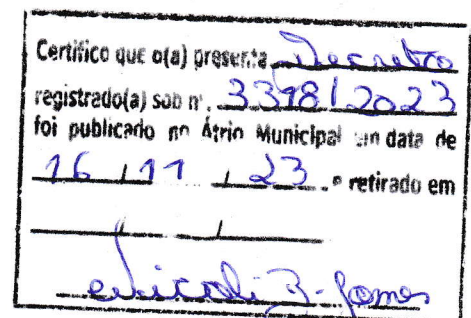 Certifico que o(a) presente Decreto
registrado(a) sob nº. 3398/2023
foi publicado no Átrio Municipal em data de
16 / 11 / 23. e retirado em
/ /
B. Gomes